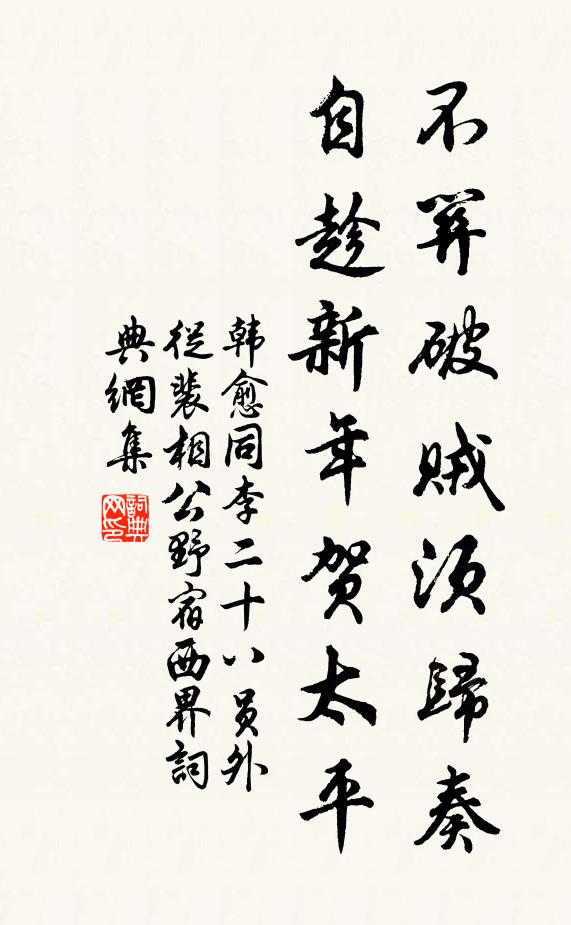 不關破賊須歸奏
自趁新年賀太平
韓愈同李二十八員外
從裴相公野宿西界詞
典網集
詞典网印